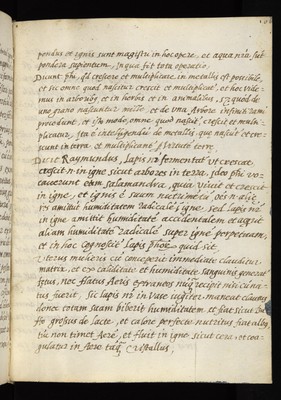 pondus et ignis sunt magistri in hoc opere, et aqua n̄ra sunt
pondera sapientum, in qua fit tota operatio.
Dicunt phi, qd crescere et multiplicare in metallis est possibile,
et sic omne quod nascitur crescit et multiplicat, et hoc vide-
mus in arboribus et in herbis et in animalibus, quod de
uno grano nascuntur mille, et de una Arbore infiniti rami
procedunt, et isto modo omne quod nascit, crescit et multi-
plicatur, ita è intelligendū de metallis que nascūt et cres-
cunt in terra et multiplicant virtute terre.
Dixit Raymundus, lapis n̄r fermentatꝰ ut crescat
crescit in igne, sicut arbores in terra, ideo phi vo-
caverunt eum salamandra, quia vivit et crescit
in igne, et ignis è suum nutrimētū
amittit humiditatem radicalē igne, sed lapis n̄r
in igne amittit humiditatē accidentalem et
aliam humiditatē radicalē super igne perpetuam,
et in hoc cognoscit lapis quid sit.
Uterus mulieris cū conceperit immediate clauditur
matrix, et ex caliditate et humiditate sanguinis generat
fetus, nec flatus Aeris extraneus recipit nisi cū na-
tus fuerit, sic lapis n̄r in vase iugiter maneat clausus
donec totum suum biberit humiditatem et fiat sicut
grossus de lacte, et calore perfecte nutritus fiat albꝰ,
tūc non timet Aerē, et fluit in igne sicut cera et coa-
gulatur in Aere cristallus,